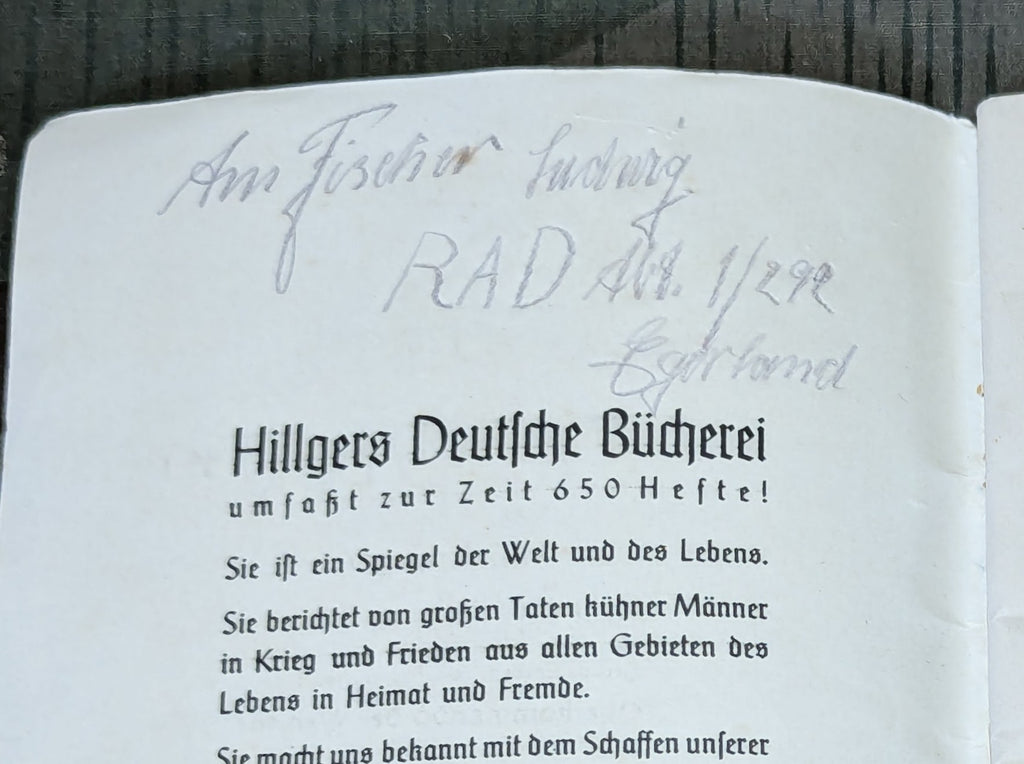 Am Fischer Ludwig
RAD Abt. 1/292
Egerland
Hillgers Deutſche Bücherei
umfaßt zur Zeit 650 Hefte!
Sie iſt ein Spiegel der Welt und des Lebens.
Sie berichtet von großen Taten kühner Männer
in Krieg und Frieden aus allen Gebieten des
Lebens in Heimat und Fremde.
Sie macht uns bekannt mit dem Schaffen unſerer